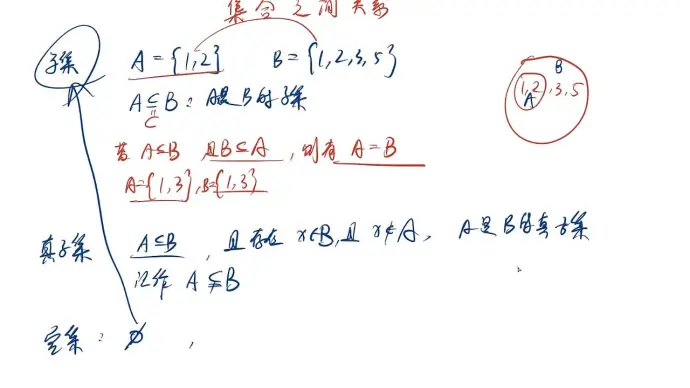 集合之间关系
子集 A={1,2} B={1,2,3,5}
B
1,2,3,5
A
A⊆B:A是B的子集
⊆
若 A⊆B 且B⊆A,则有 A=B
A={1,3},B={1,3}
真子集 A⊆B,且存在 x∈B,且 x∉A, A是B的真子集
记作 A⫋B
空集: ∅,